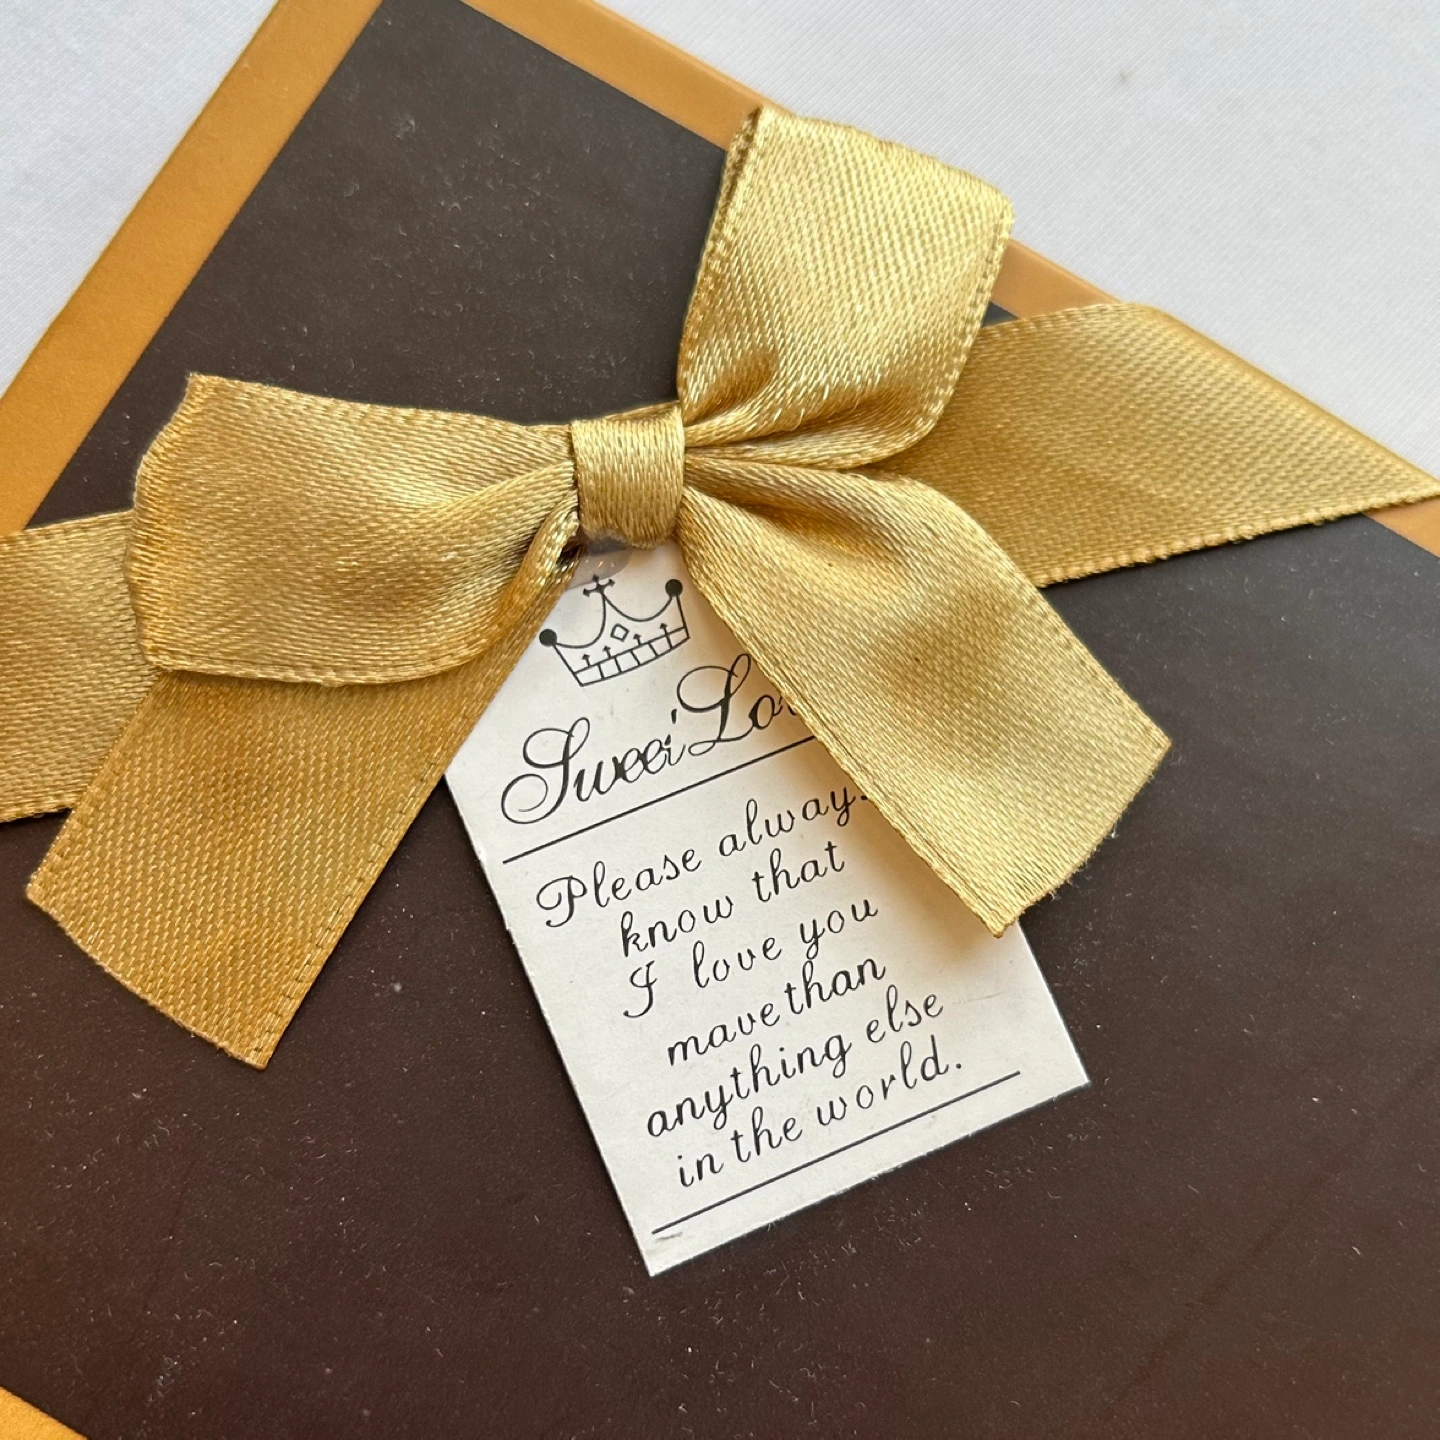 Sweet Lo
Please always
know that
I love you
mave than
anything else
in the world.